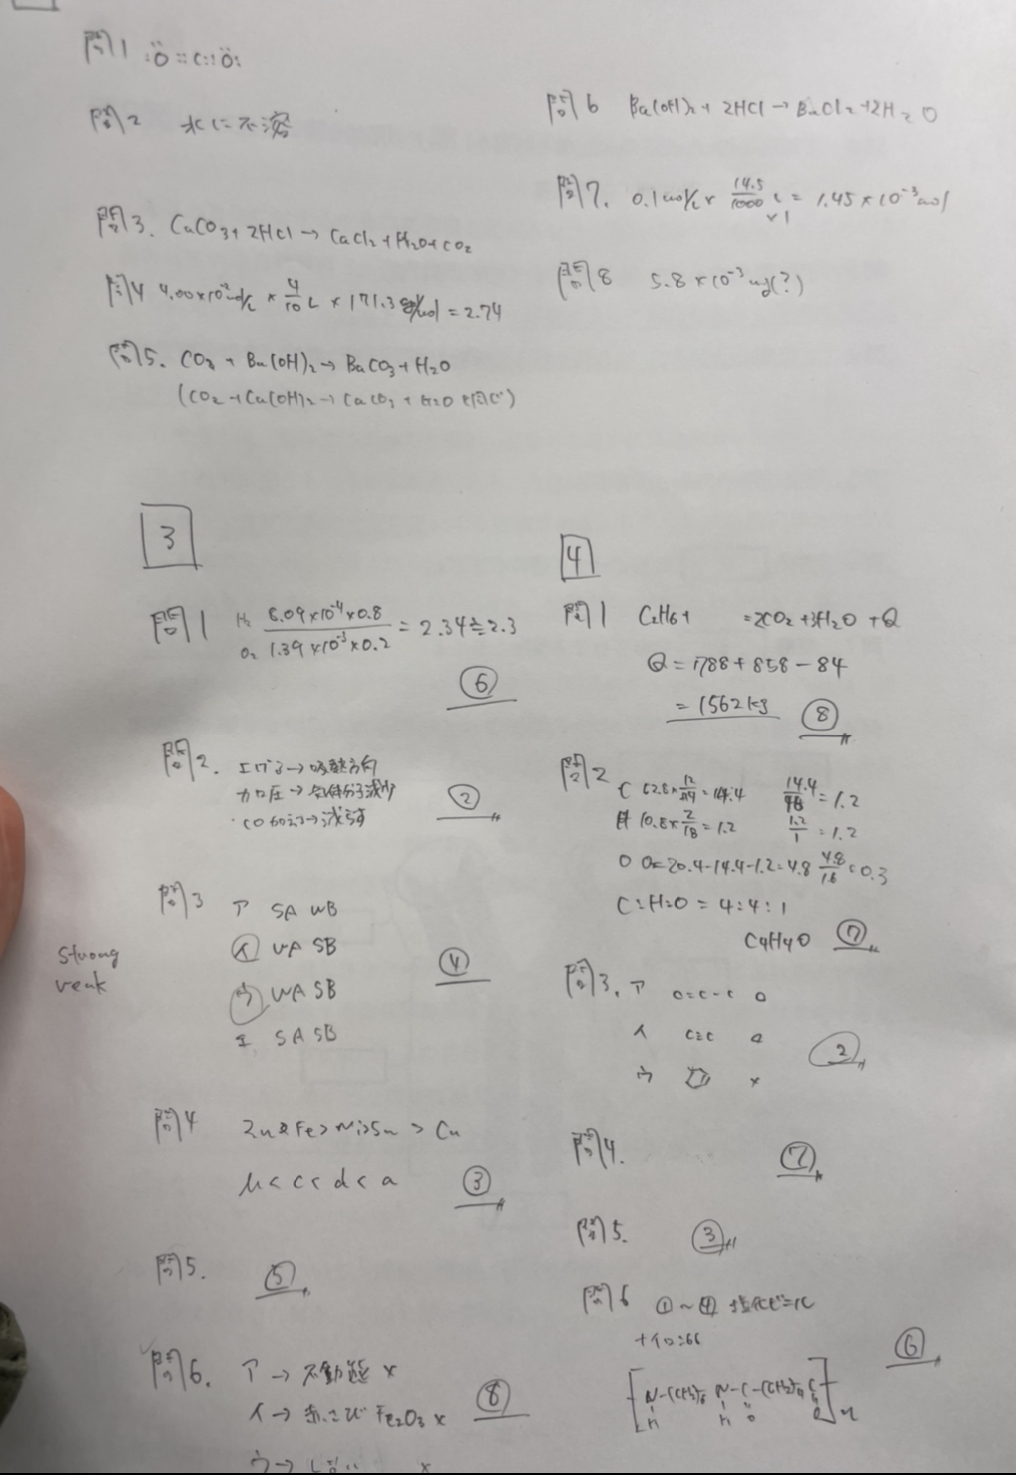 問1 :Ö::C::Ö:
問2 水に不溶
問3. CaCO₃+2HCl→CaCl₂+H₂O+CO₂
問4 4.00×10⁻²mol/L × 4/10 L × 171.3g/mol = 2.74
問5. CO₂ + Ba(OH)₂→BaCO₃+H₂O
(CO₂+Ca(OH)₂→CaCO₃+H₂Oと同じ)
問6 Ba(OH)₂+2HCl→BaCl₂+2H₂O
問7. 0.1mol/L× 14.5/1000 L ×1 = 1.45×10⁻³mol
問8 5.8×10⁻³mg(?)
3
問1 H₂ 8.09×10⁻⁴×0.8 / O₂ 1.39×10⁻³×0.2 = 2.34≒2.3
⑥
問2. 工口了→吸熱方向
加圧→気体分子減少
・CO加える→減らす
②
問3 ア SA WB
イ WA SB
ウ WA SB
エ SA SB
④
Strong
weak
問4 Zn Fe>Ni>Sn>Cu
b<c<d<a ③
問5. ⑤
問6. ア→不動態 ×
イ→赤さび Fe₂O₃ ×
ウ→ ×
⑧
4
問1 C₂H₆+ =2CO₂+3H₂O+Q
Q=1788+858-84
=1562kJ ⑧
問2 C 52.8×12/44=14.4 14.4/12=1.2
H 10.8×2/18=1.2 1.2/1=1.2
O O=20.4-14.4-1.2=4.8 4.8/16=0.3
C:H:O=4:4:1
C₄H₄O ⑦
問3. ア C=C-C ○
イ C=C ○
ウ ×
②
問4. ⑦
問5. ③
問6 ①~④
ナイロン66
⑥
[N-(CH₂)₆-N-C-(CH₂)₄-C]n
H H O O